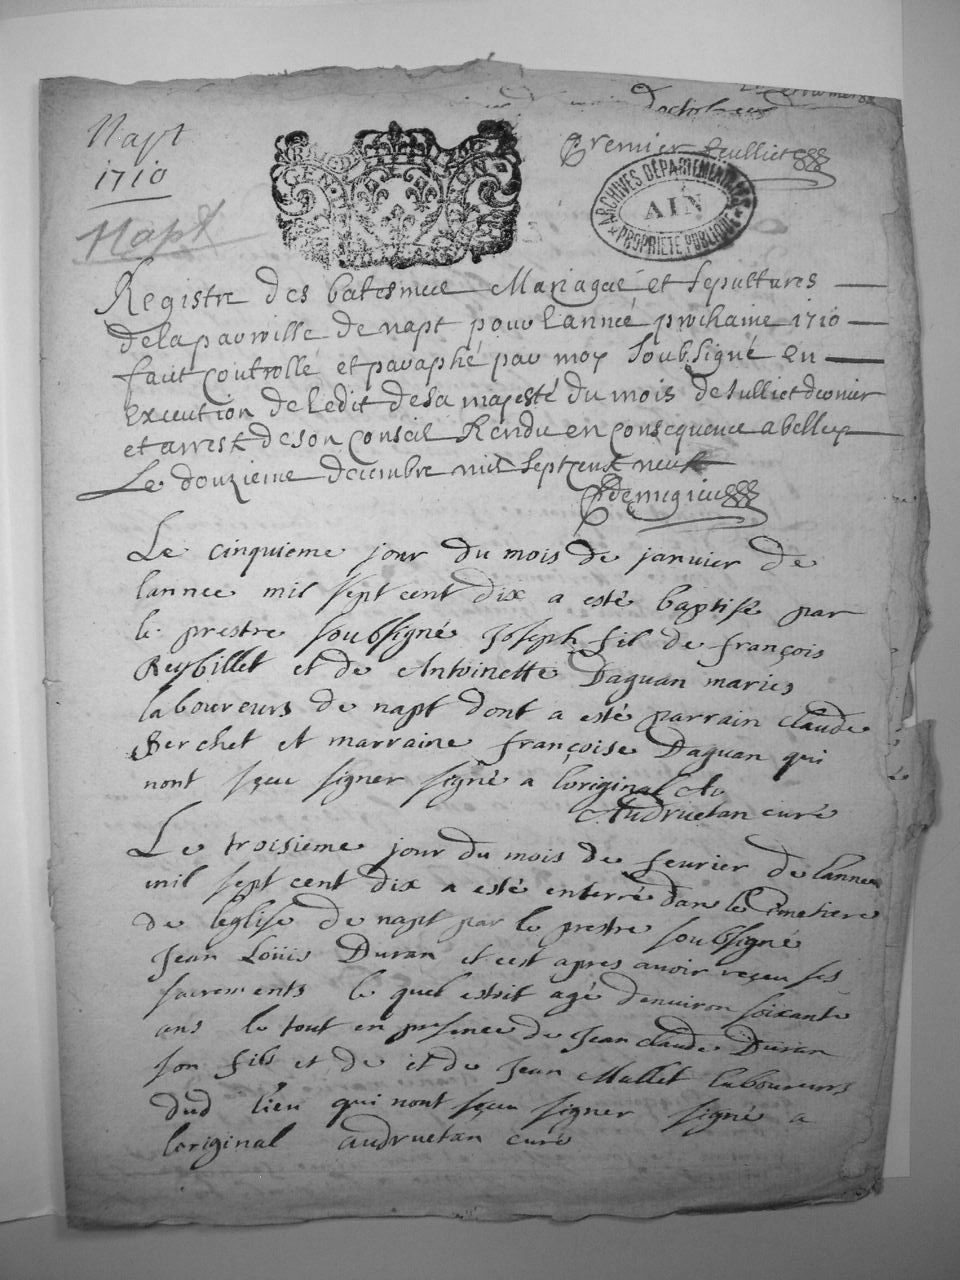 Doctobre
Napt
1710
Premier feulliet
Napt
ARCHIVES DÉPARTEMENTALES
AIN
PROPRIÉTÉ PUBLIQUE
GEN
Registre des batesmes Mariages et Sepultures
de la parroisse de napt pour l'année prochaine 1710
fait controllé et paraphé par moy Soubsigné en
execution de ledit de sa majesté du mois de Julliet dernier
et arrest de son Conseil Rendu en consequence a belley
Le douzieme decembre mil sept cent neuf
Le cinquieme jour du mois de janvier de
lannee mil sept cent dix a esté baptisé par
le prestre soubsigné Joseph fil de françois
Reybillet et de Antoinette Daguan maries
laboureurs de napt dont a esté parrain claude
Berchet et marraine françoise Daguan qui
nont sçeu signer signé a loriginal
Audruetan curé
Le troisieme jour du mois de feurier de lannee
mil sept cent dix a esté enterré dans le Cimetiere
de leglise de napt par le prestre soubsigné
Jean Loüis Duran et cest apres avoir reçeu ses
sacrements le quel estoit agé denuiron soixante
ans le tout en presence de Jean claude Duran
son fils et de et de Jean Mallet laboureurs
dud lieu qui nont sçeu signer signé a
loriginal audruetan curé